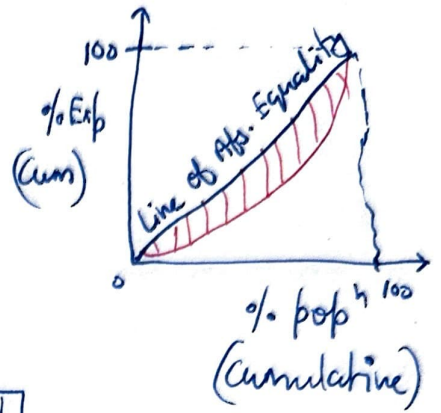 100
% Exp
(Cum)
Line of Abs. Equality
0
100
% popⁿ
(Cumulative)